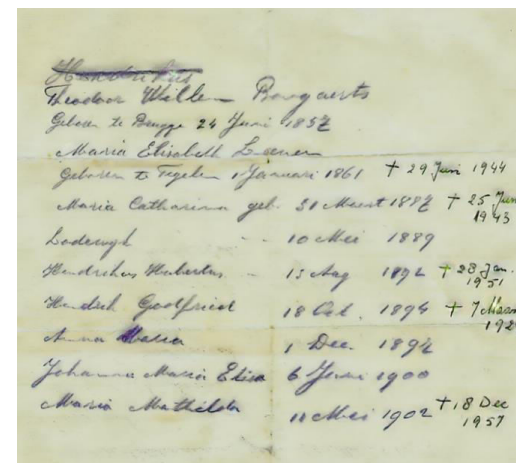 Hendrikus
Theodoor Willem Bongaerts
Geboren te Brugge 24 Juni 1857
Maria Elisabeth
Geboren te Tegelen 1 Januari 1861 † 29 Juni 1944
Maria Catharina geb. 31 Maart 1887 † 25 Juni
1943
Lodewyk - - 10 Mei 1889
Hendrikus Hubertus - 13 Aug 1892 † 28 Jan.
1951
Hendrik Godfried 18 Oct. 1894 † 7 Maart
Anna Maria 1 Dec. 1897
Johanna Maria Elisa 6 Juni 1900
Maria Mathilda 11 Mei 1902 † 18 Dec
1957